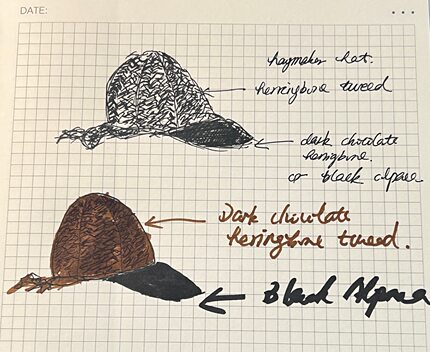 DATE:
haymaker hat.
herringbone tweed
dark chocolate
herringbone.
or black alpaca
Dark chocolate
herringbone tweed.
Black Alpaca